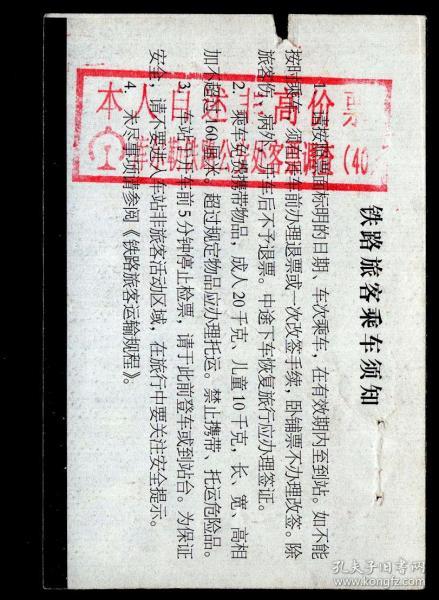 铁路旅客乘车须知
1、请按票面标明的日期、车次乘车，在有效期内至到站。如不能
按时乘车，须在开车前办理退票或一次改签手续，卧铺票不办理改签。除
旅客伤、病外，开车后不予退票。中途下车恢复旅行应办理签证。
2、乘车免费携带物品，成人20千克、儿童10千克，长、宽、高相
加不超过160厘米。超过规定物品应办理托运。禁止携带、托运危险品。
3、车站在开车前5分钟停止检票，请于此前登车或到站台。为保证
安全，请不要进入车站非旅客活动区域，在旅行中要关注安全提示。
4、未尽事项请参阅《铁路旅客运输规程》。
本人自述非高价票
公安处客票调查（40）
孔夫子旧书网